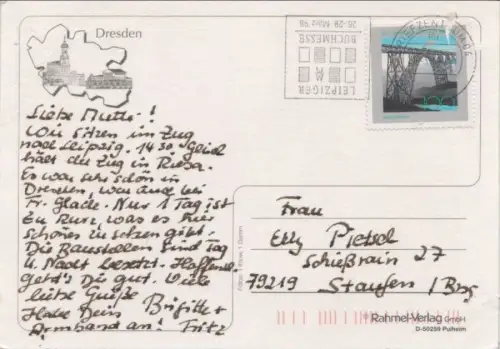 Dresden
Liebe Mutter!
Wir sitzen im Zug
nach Leipzig. 14 30 Gleich
hält der Zug in Riesa.
Es war sehr schön in
Dresden, war auch bei
Fr. Glade. Nur 1 Tag ist
zu kurz, was es hier
schönes zu sehen gibt.
Die Baustellen sind Tag
u. Nacht besetzt. Hoffentl.
geht's Dir gut. Viele
liebe Grüße
Habe Dein Brigitte
Armband an! Fritz
LEIPZIGER
BUCHMESSE
26-29 März 98
BRIEFZENTRUM 04
100
Frau
Elly Pietsch
Schießrain 27
79219 Staufen / Brsg
Rahmel-Verlag GmbH
D-50259 Pulheim